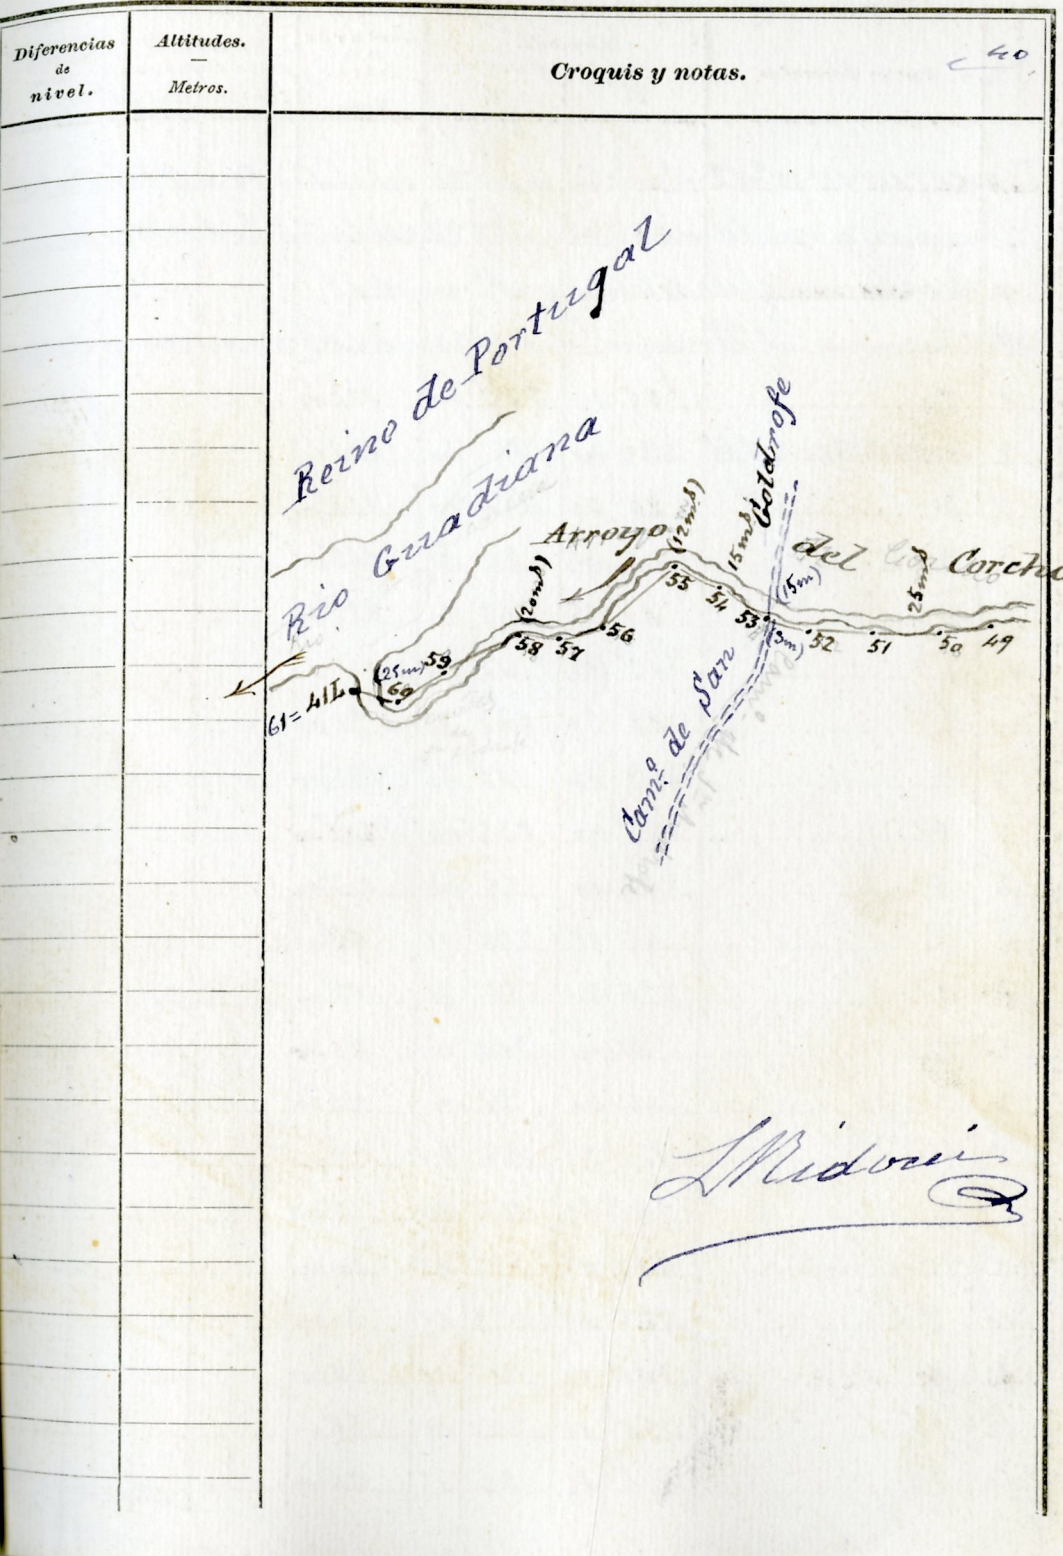 Diferencias
de
nivel.
Altitudes.
Metros.
Croquis y notas.
40
Reino de Portugal
Rio Guadiana
Arroyo del Corcho
Cam.º de San Goldrofe
(12m§)
15m§
(15m)
25m§
(20m§)
(3m)
(25m)
49
50
51
52
53
54
55
56
57
58
59
60
61= 41L